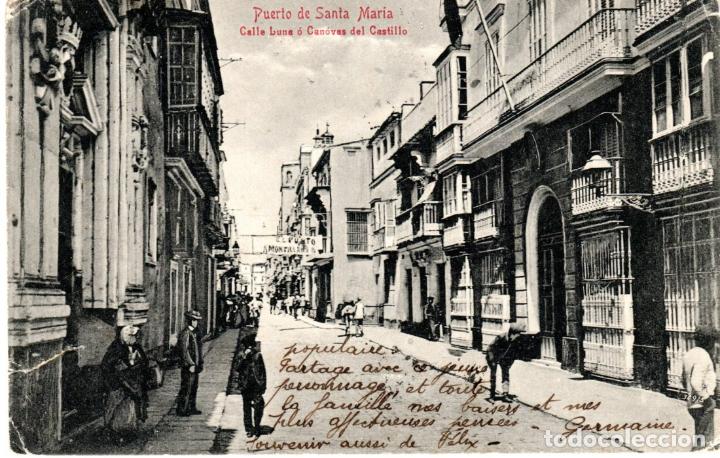 Puerto de Santa Maria
Calle Luna ó Canóvas del Castillo
EL PUERTO
MONTILLA
populaire.
Partage avec ce jeune
personnage, et toute
la famille nos baisers et mes
plus affectueuses pensées — Germaine.
Souvenir aussi de Félix —
todocoleccion.net